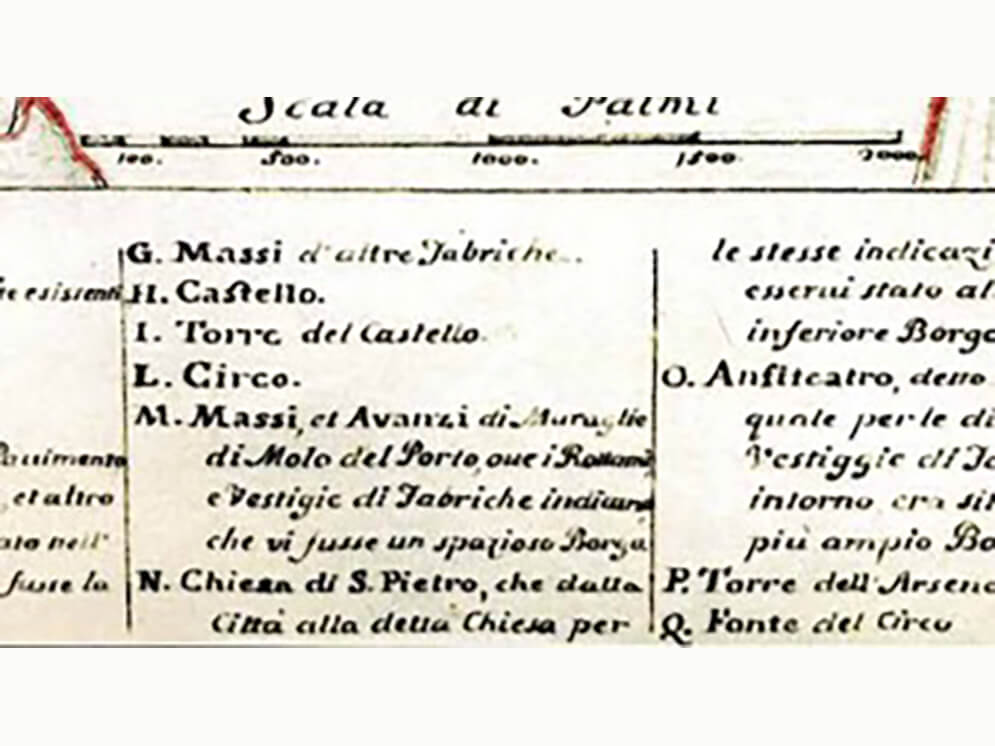 Scala di Palmi
100. 500. 1000. 1500 2000
et altro
fusse la
G. Massi d'altre Fabriche.
H. Castello.
I. Torre del Castello.
L. Circo.
M. Massi, et Avanzi di Muraglie
di Molo del Porto, oue i Rottami
e Vestigie di Fabriche indicano
che vi fusse un spazioso Borgo
N. Chiesa di S. Pietro, che dalla
Città alla detta Chiesa per
le stesse indicazi
esserui stato al
inferiore Borgo
O. Anfiteatro, detto
quale per le di
Vestiggie di Fa
intorno era sit
più ampio Bo
P. Torre dell' Arsena
Q. Fonte del Circo